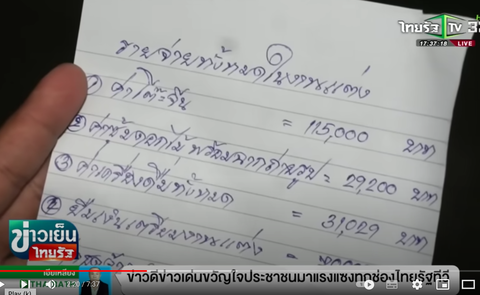 ไทยรัฐTV 32
17:37:18 LIVE
รายจ่ายทั้งหมดในงานแต่ง
① ค่าโต๊ะจีน = 115,000 บาท
② ค่าซุ้มดอกไม้ พร้อมฉากถ่ายรูป = 29,200 บาท
③ ค่าเครื่องดื่มทั้งหมด = 31,029 บาท
④ ยืมเงินเตรียมงานแต่ง =
ข่าวเย็น
ไทยรัฐ
ข่าวดีข่าวเด่นขวัญใจประชาชนมาแรงแซงทุกช่องไทยรัฐทีวี
/ 7:37
Play (k)